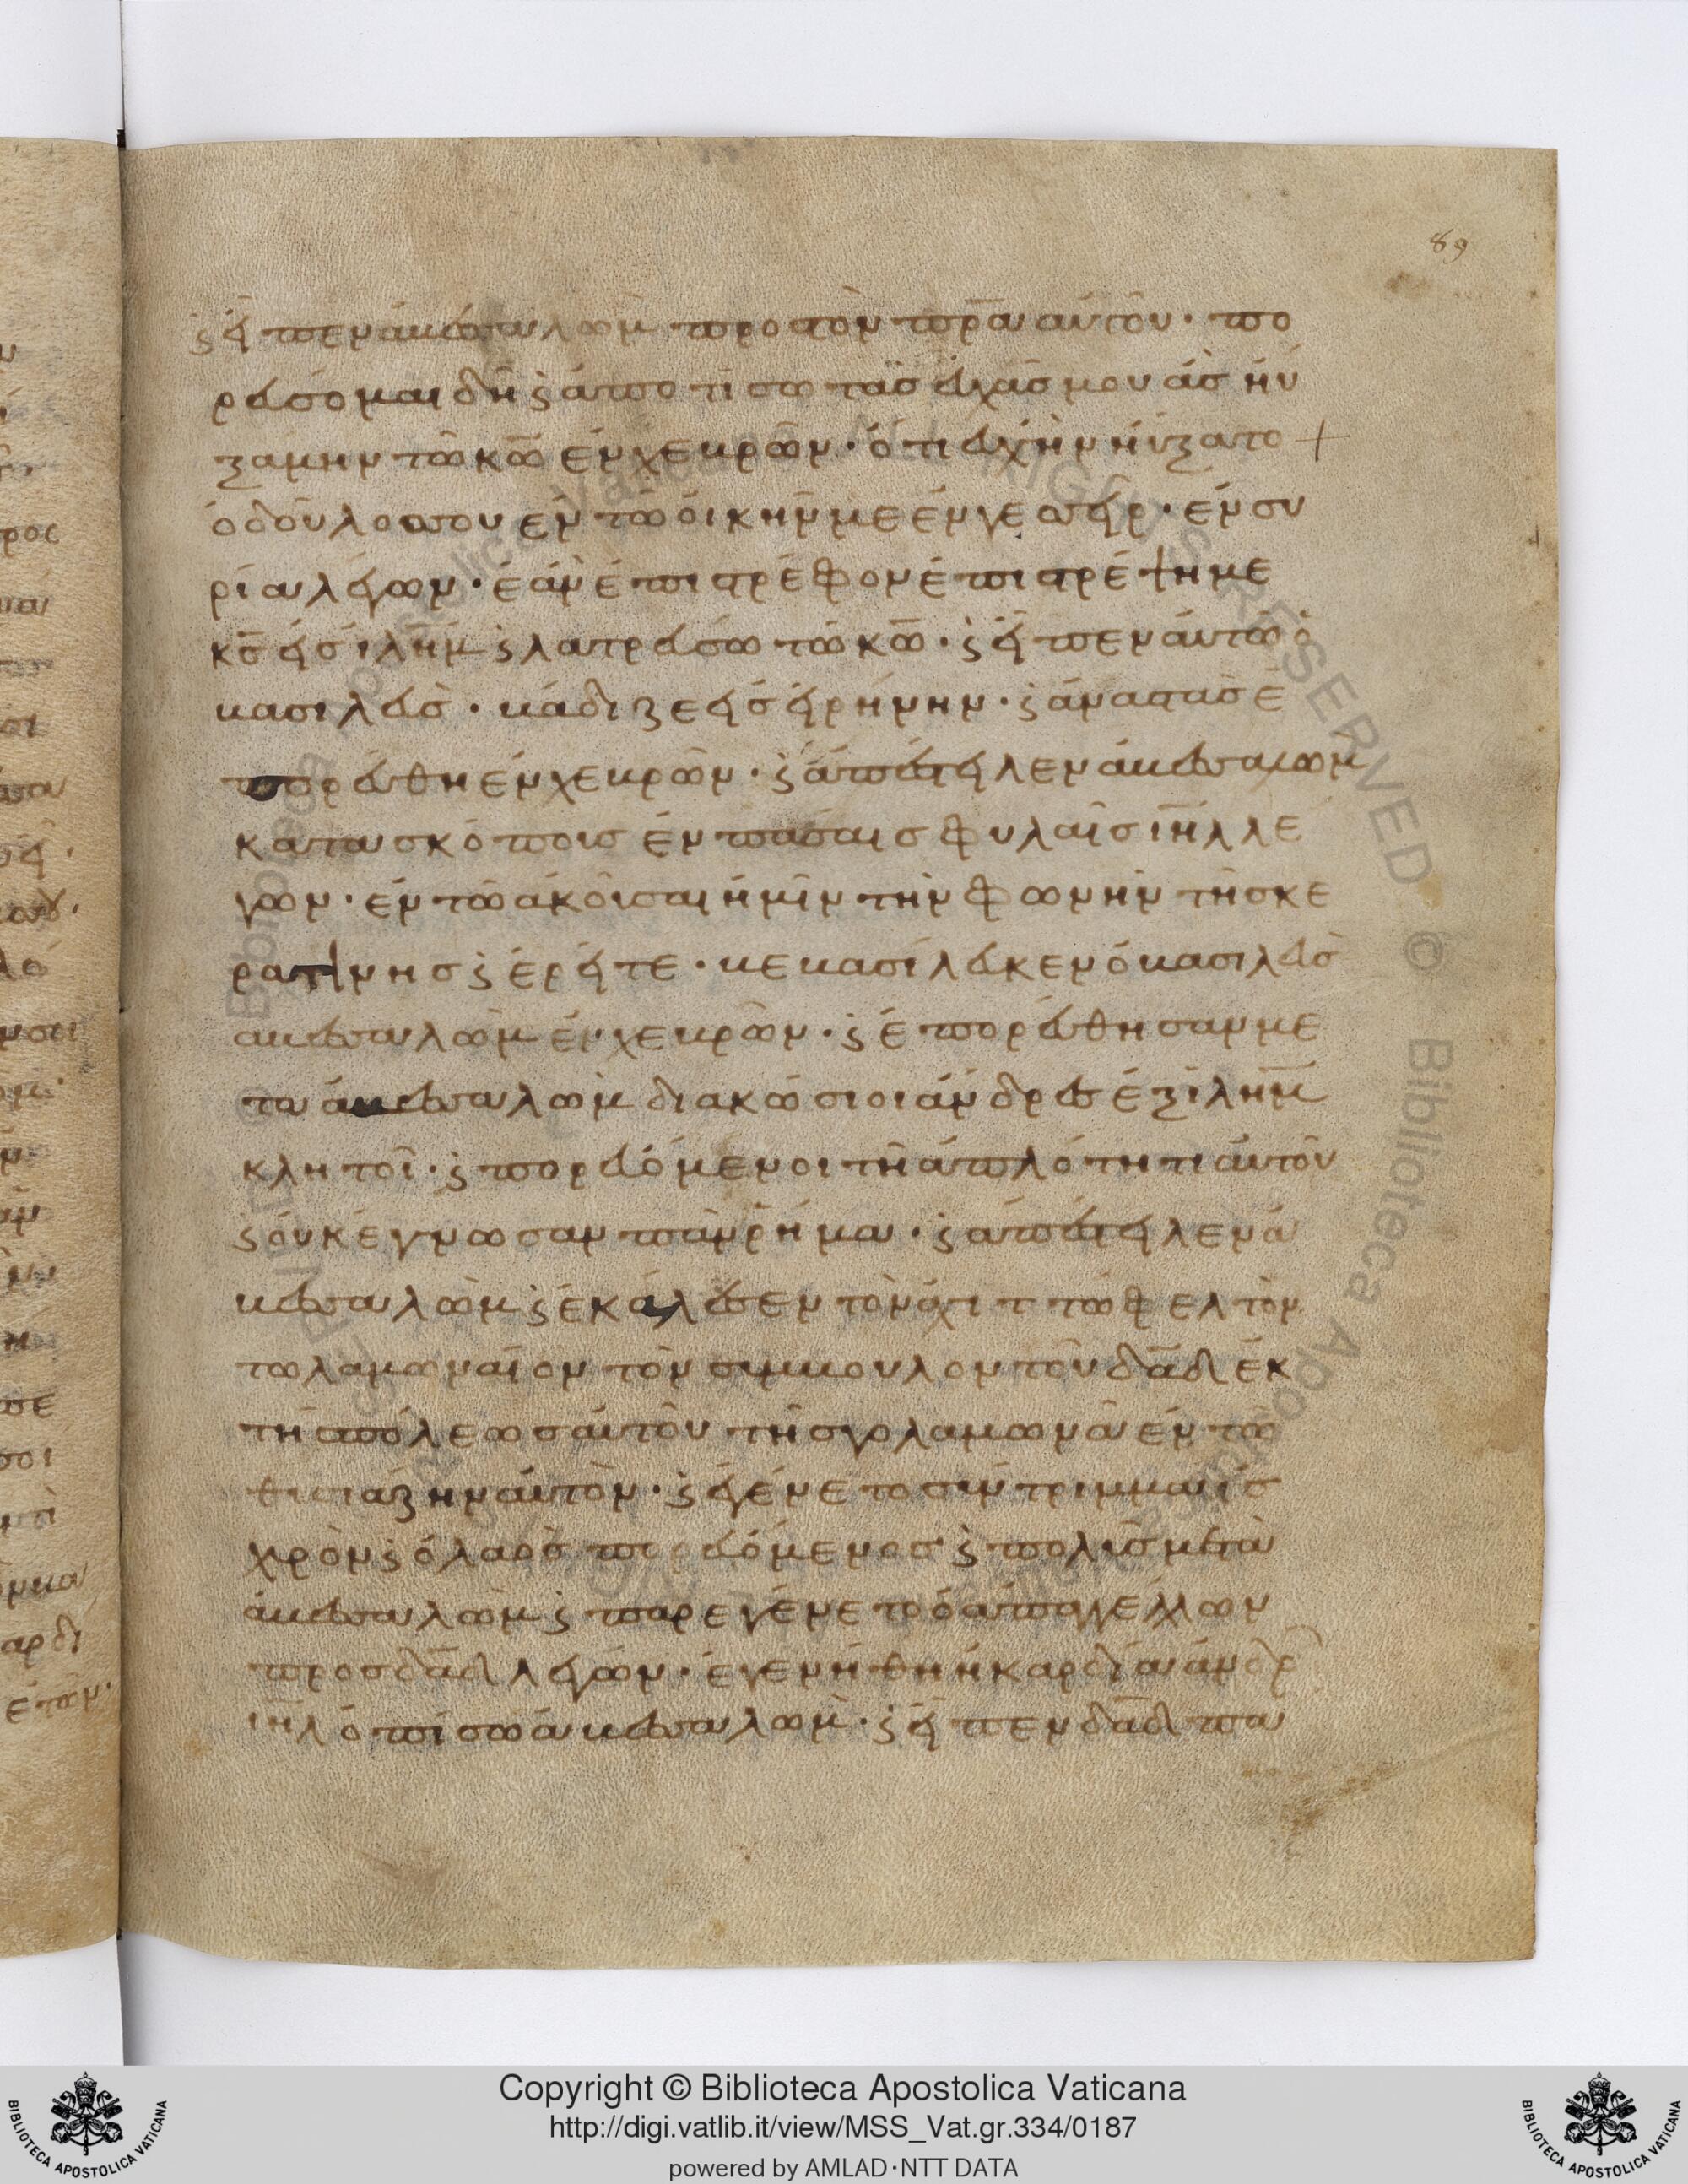 89
ϛ εἶπεν ἀβεσαλὼμ πρὸς τὸν πρ̅α αὐτοῦ · πο
ρεύσομαι δὴ ϛ ἀποτίσω τὰς εὐχάς μου ἃς ηὐ
ξάμην τῶ κω̅ ἐν χεβρὼν · ὅτι εὐχὴν ηὔξατο +
ὁ δοῦλοσσου ἐν τῶ οἰκῆν με ἐν γεσεὶρ · ἐν συ
ρία λέγων · ἐὰν ἐπιστρέφον ἐπιστρέψη με
κσ̅ εἰς ἰλη̅μ ϛ λατρεύσω τῶ κω̅ · ϛ εἶπεν αὐτῶ ὁ
βασιλεὺς · βάδιζε εἰς εἰρήνην · ϛ ἀναστὰς ἐ
πορεύθη ἐν χεβρὼν · ϛ ἀπέστειλεν ἀβεσαλωμ
κατασκόπους ἐν πάσαις φυλαῖς ιη̅λ λέ
γων · ἐν τῶ ἀκοῦσαι ἡμῖν τὴν φωνὴν τῆς κε
ρατίνης ϛ ἐρεῖτε · βεβασίλευκεν ὁ βασιλεὺς
αβεσαλὼμ ἐν χεβρὼν · ϛ ἐπορεύθησαν με
τα ἀβεσαλὼμ διακώσιοι ἄνδρες ἐξ ιλη̅μ
κλητοῖ · ϛ πορευόμενοι τῆ ἁπλότητι αὐτοῦ
ϛ οὐκ ἔγνωσαν πὰν ῥήμα · ϛ ἀπέστειλεν ἀ
βεσαλὼμ ϛ ἐκάλεσεν τὸν ἀχιττώφελ τὸν
τωλαμωναῖον τὸν σύμβουλον τοῦ δα̅δ ἐκ
τῆσπόλεωσ αὐτοῦ τῆς γολαμωνᾶ ἐν τῶ
θυσιάζην αὐτὸν · ϛ ἐγένετο σύντριμμα ἰσ
χυρὸν ϛ ὁ λαὸς πορευόμενος ϛ πολὺς μετὰ
ἀβεσαλὼμ ϛ παρεγένετο ὁ ἀπαγγέλλων
προς δα̅δ λέγων · ἐγενήθη ἡ καρδία ἀνδρ
ιη̅λ ὀπίσω ἀβεσαλωμ · ϛ εἶπεν δα̅δ πα
Copyright © Biblioteca Apostolica Vaticana
http://digi.vatlib.it/view/MSS_Vat.gr.334/0187
powered by AMLAD·NTT DATA